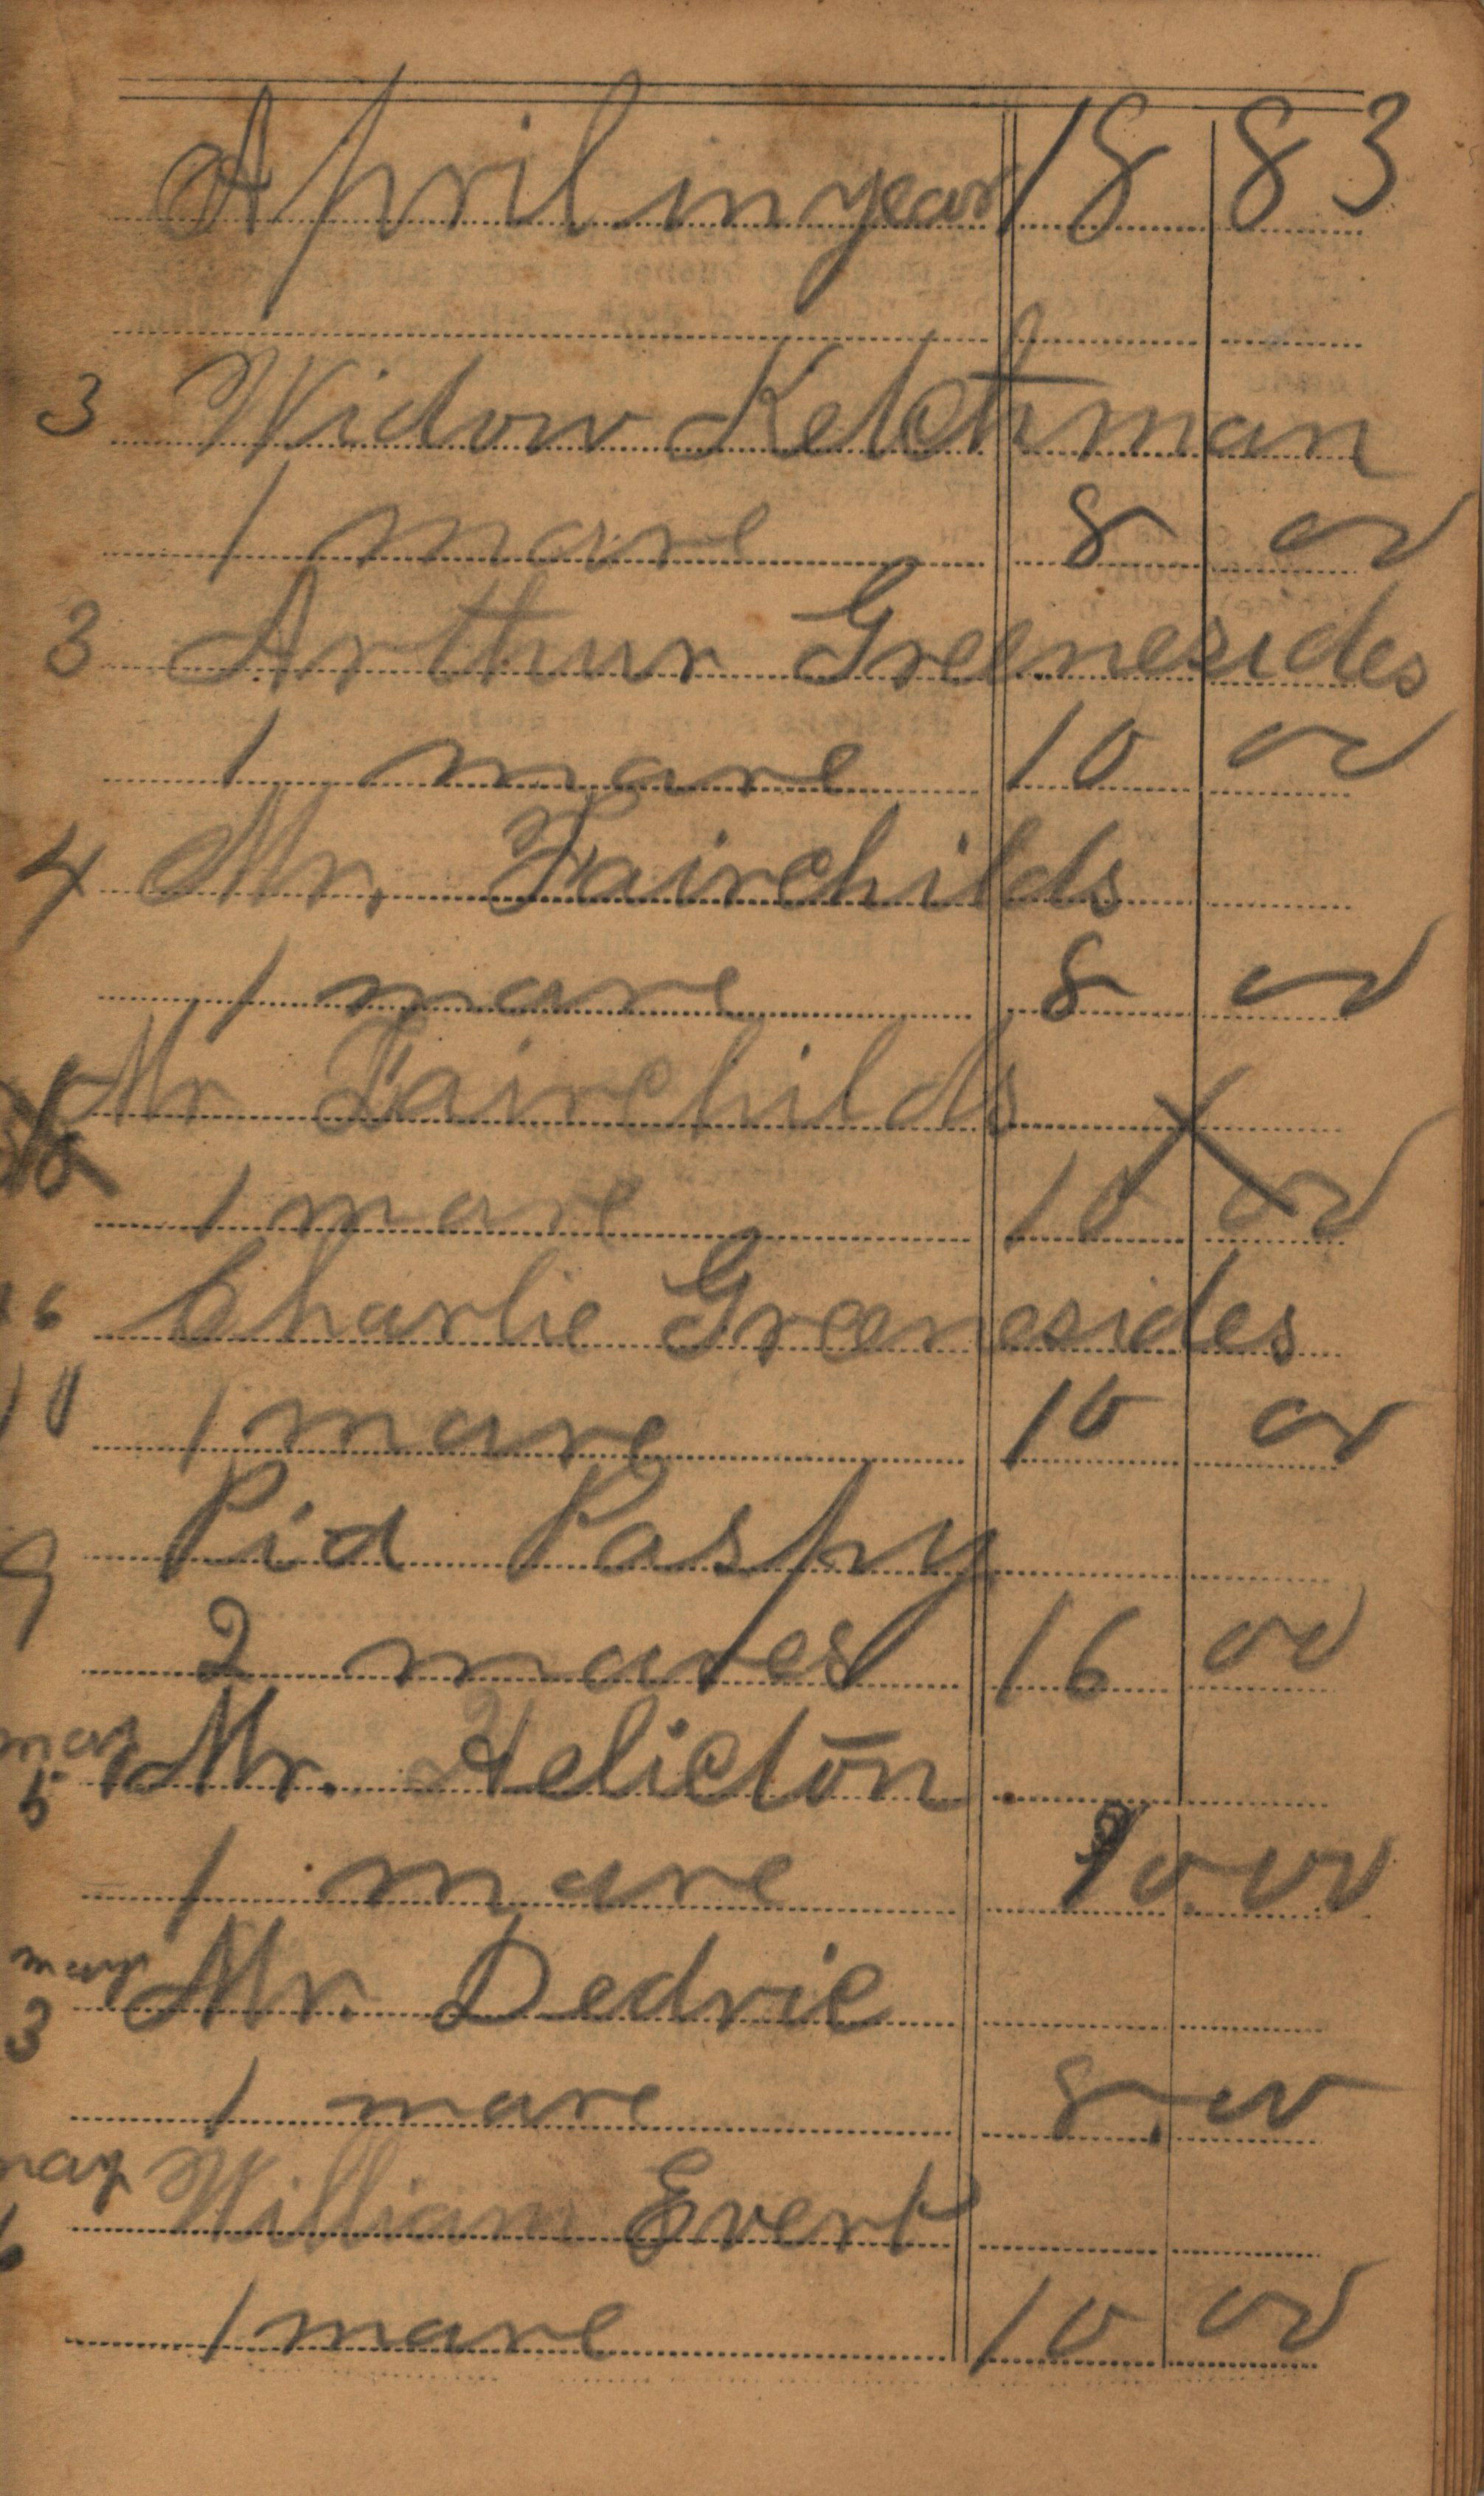 April in year 1883
3 Widow Ketchman
1 mare 8 00
3 Arthur Greenesides
1 mare 10 00
4 Mr. Fairchilds
1 mare 8 00
Mr Fairchilds
1 mare 10 00
16 Charlie Greenesides
10 1 mare 10 00
9 Pid Paspy
2 mares 16 00
may Mr. Helicton
5
1 mare 10 00
may Mr. Dedrie
3
1 mare 8,00
may William Evert
6
1 mare 10 00